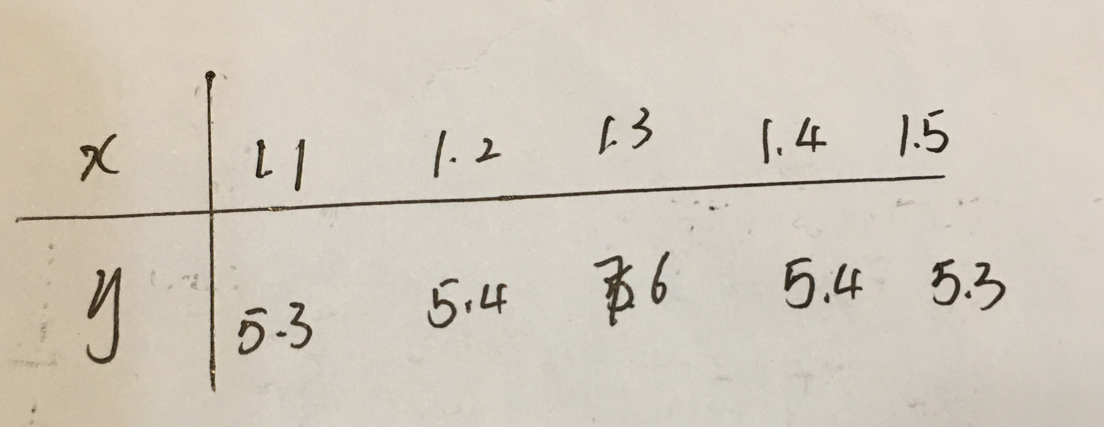 x 1.1 1.2 1.3 1.4 1.5
y 5.3 5.4 5.4 5.3